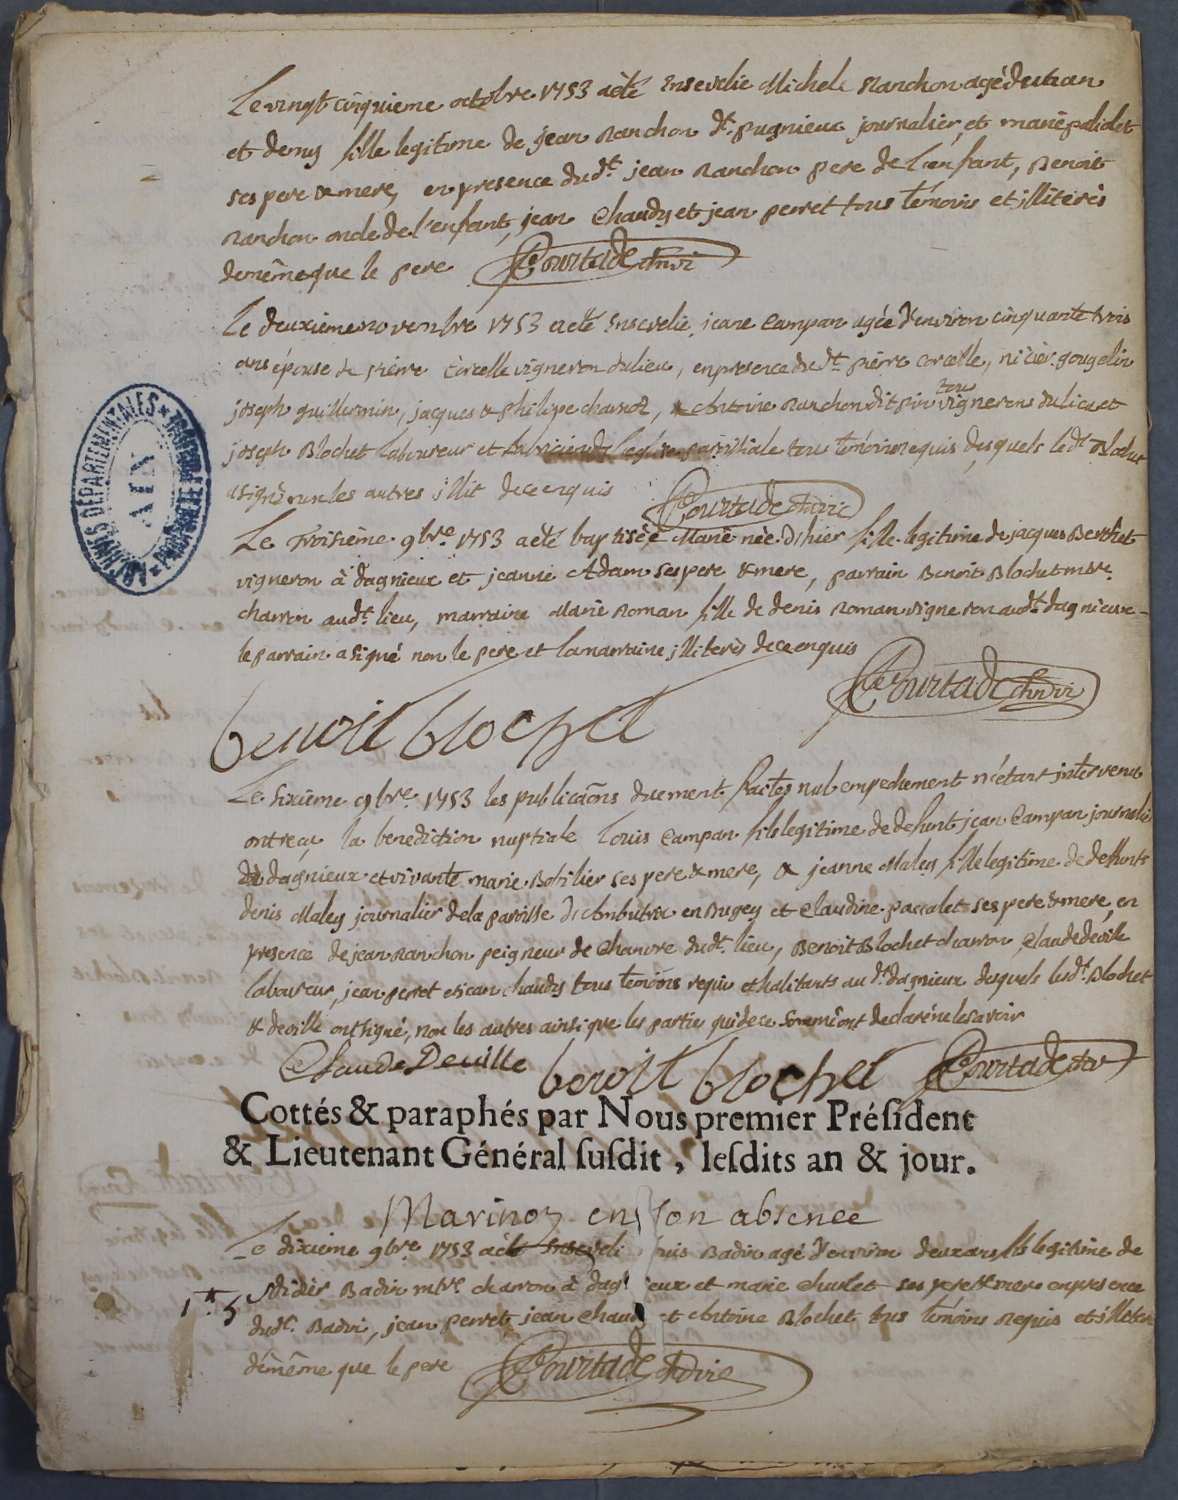 Le vingt cinquieme octobre 1753 a èté Ensevelie Michele Ranchon agé d'un an
et demy fille legitime de jean Ranchon dt. pugnieux journalier, et marie paliolet
ses pere & mere, en presence dudt. jean Ranchon pere de l'enfant, Benoit
Ranchon oncle de l'enfant, jean Chaudy et jean perret tous témoins et illiterès
de même que le pere Courtade
Le deuxieme novembre 1753 a eté Ensevelie jeane Campan agée d'environ cinquante trois
ans épouse de pierre Corcelle vigneron du lieu, en presence dudt. pierre corcelle, nicier gougelin
joseph guillermin, jacques & philippe charnoz, & Antoine Ranchon dit pin tous vignerons du lieu et
joseph Blochet laboureur et de l'eglise parroitiale tous témoins requis desquels ledt. Blochet
a signé non les autres illit de ce enquis Courtade
Le Troisième 9bre. 1753 a èté baptisèe Marie née d'hier fille legitime de jacques Berthet
vigneron à dagnieux et jeanne Adam ses pere & mere, parrain Benoit Blochet mtre.
charron audt. lieu, marraine Marie Roman fille de denis Roman vigneron audt. dagnieux
le parrain a signé non le pere et la marraine illiterès de ce enquis
Courtade
benoit blochet
Le Sixième 9bre 1753 les publicãons duement faites nul empechement n'étant intervenu
ont reçu la benediction nuptiale Louis Campan fils legitime de defunt jean Campan journalier
de dagnieux et vivante marie Bobilier ses pere & mere, & jeanne Maley fille legitime de defunts
denis Maley journalier de la paroisse d'Ambutrix en Bugey et Claudine paccalet ses pere & mere, en
presence de jean Ranchon peigneur de chanvre dudt. lieu, Benoit Blochet charron, Claude deville
laboureur, jean perret et jean chaudy tous temoins requis et habitants audt. dagnieux desquels lesdt. Blochet
& deville ont signé, non les autres ainsi que les parties qui de ce ont declaré ne le savoir
Claude Deville benoit blochet Courtade
Cottés & paraphés par Nous premier Préſident
& Lieutenant Général ſuſdit, leſdits an & jour.
Marinoz en son absence
Le dixieme 9bre 1753 a èté Enseveli Badin agé d'environ deux ans fils legitime de
Badin mtre. charron à dagnieux et marie Churlet ses pere & mere en presence
1rt. 5
dudt. Badin, jean perret, jean chaudy et Antoine Blochet tous témoins Requis et illiterès
de même que le pere Courtade
ARCHIVES DÉPARTEMENTALES
AIN